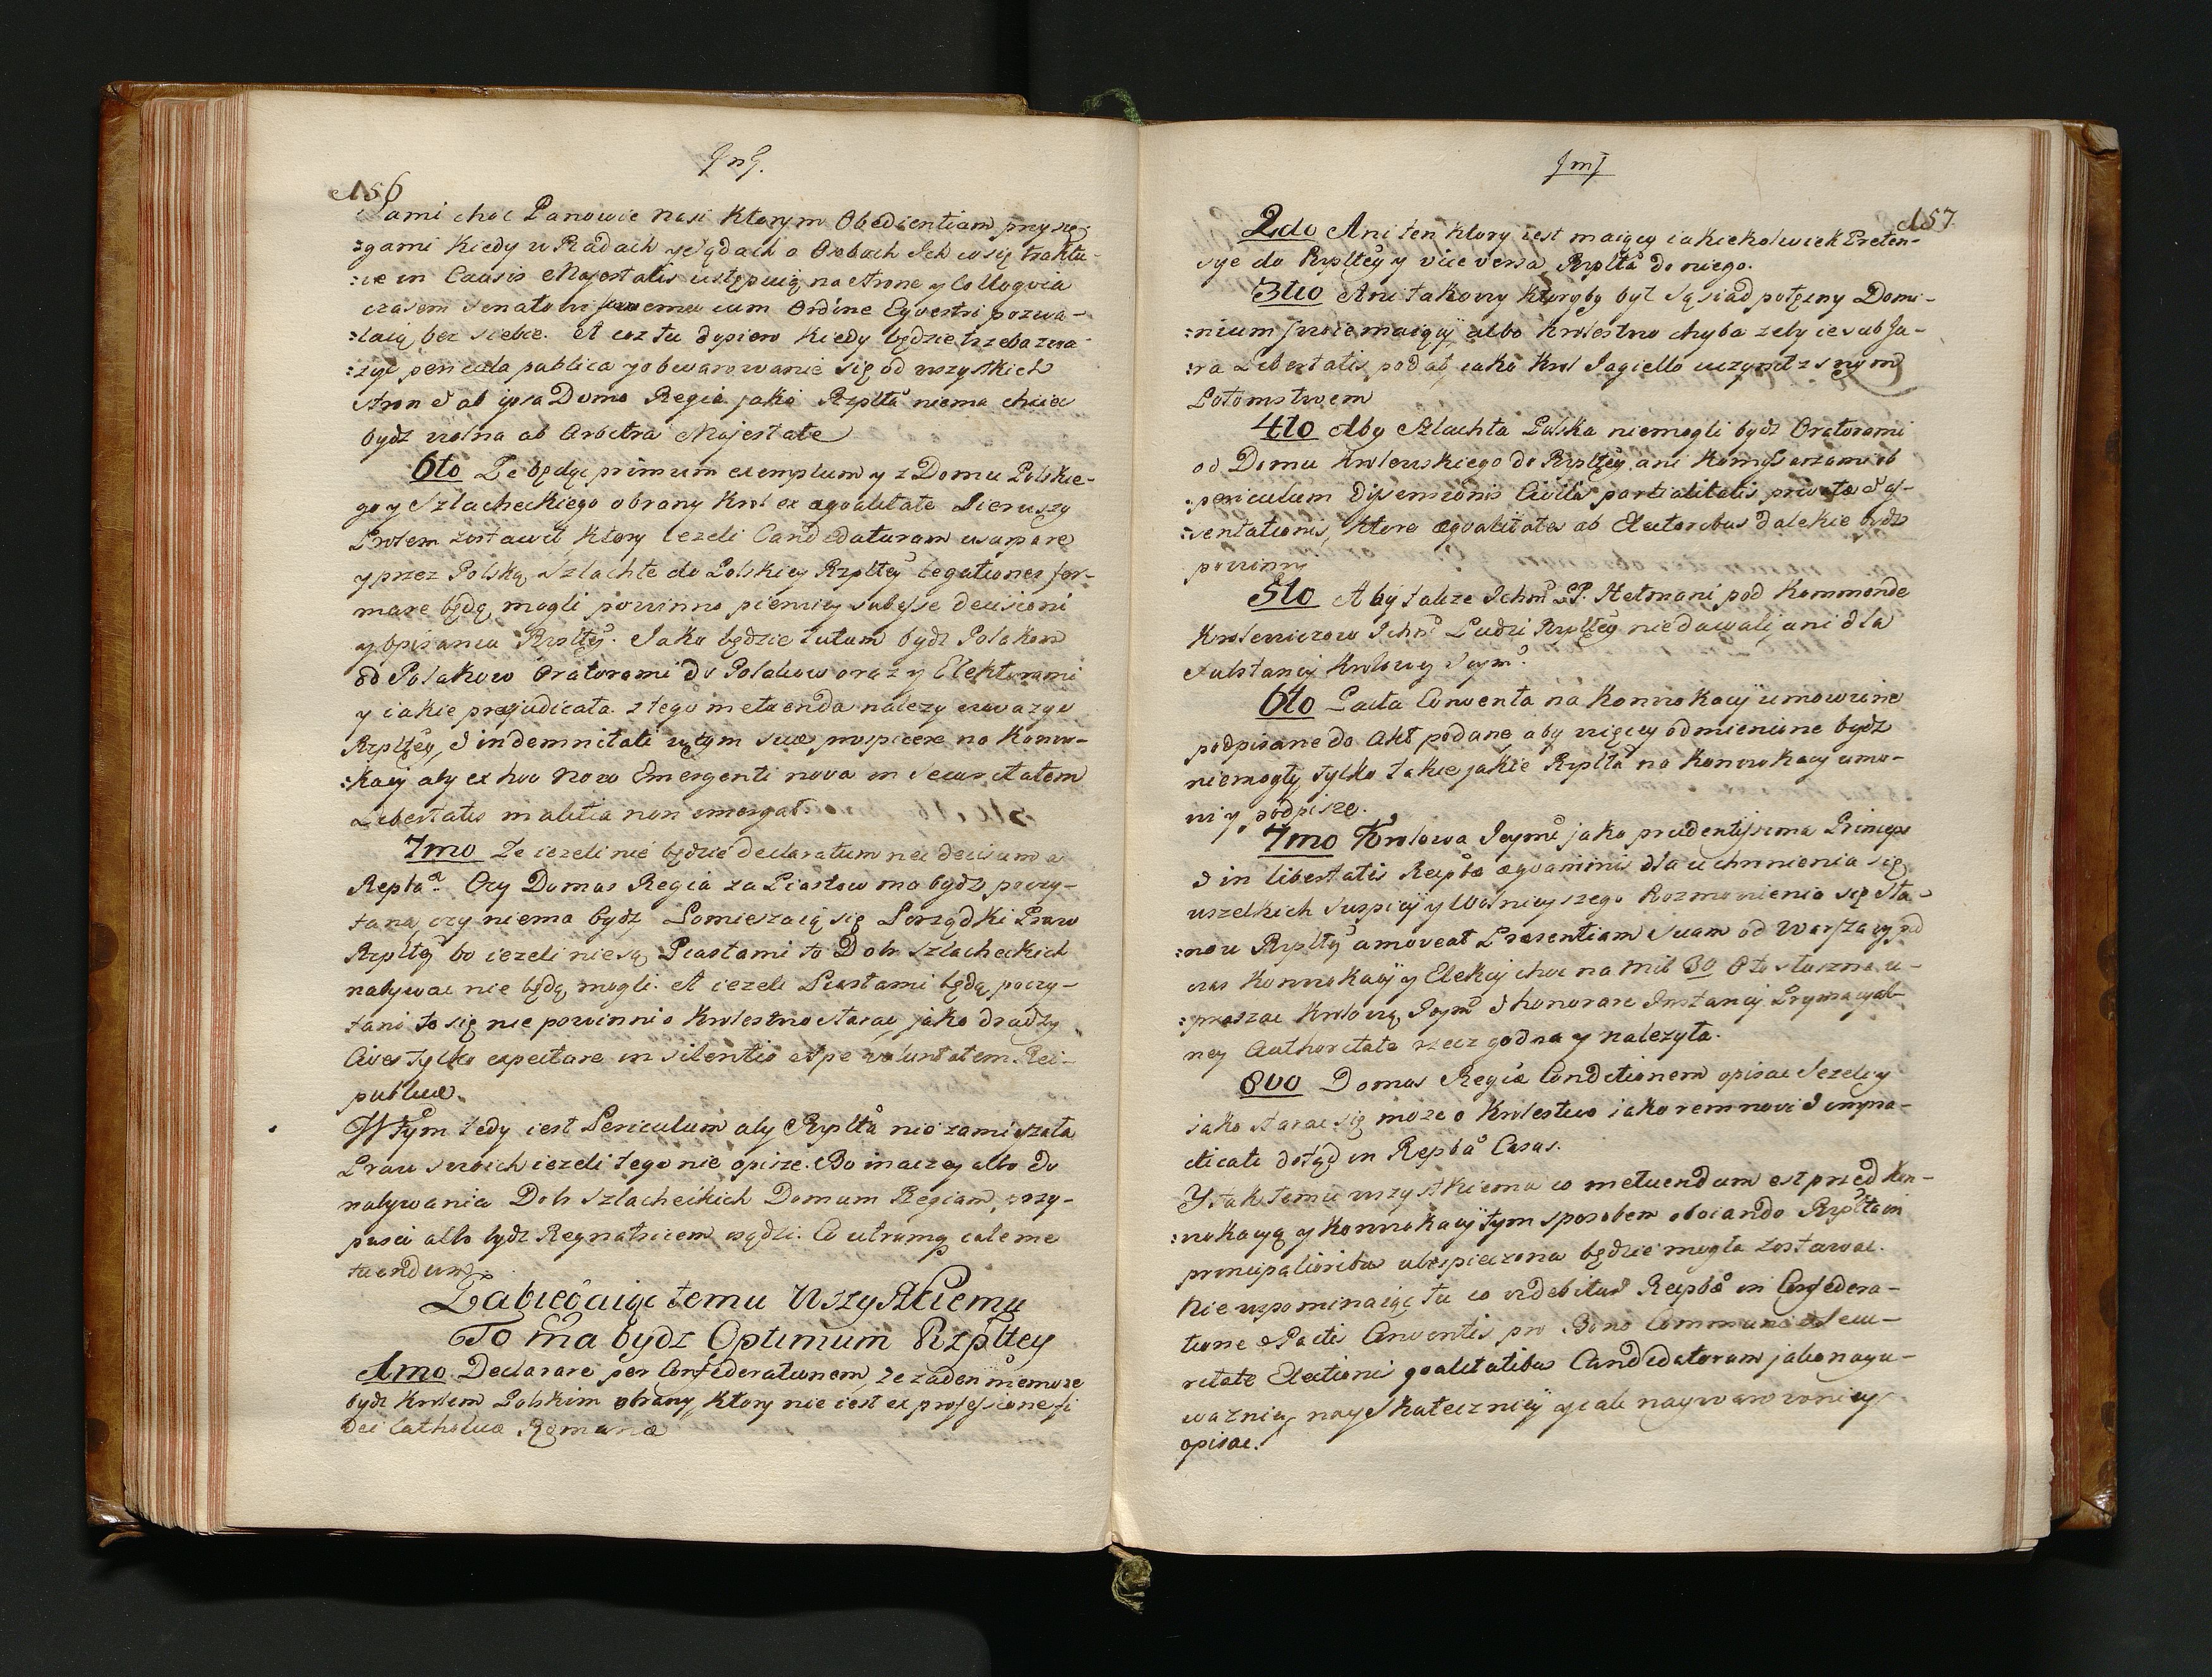 156
Sami choc Panowie nasi ktorym Obedientiam przysię-
:gami kiedy w Radach y Sądach o Osobach Ich co się traktu-
:ie in Causis Majestatis ustępuią na stronę y Colloqvia
czasem Senatowi samemu cum Ordine Eqvestri pozwa-
:laią bez siebie. A coz tu dopiero kiedy będzie trzeba zwa-
:zyc pericula publica y obwarowanie się od wszystkich
stron & ab ipsa Domo Regia jako Rzpltā niema chciec
bydz wolna ab Arbitra Majestate
6to Ze będąc primum exemplum y z Domu Polskie-
go y Szlacheckiego obrany Krol ex æqvalitate Pierwszy
Prolem zostawił, ktory iezeli Candidaturam usurpare
y przez Polską Szlachte do Polskiey Rzpltey legationes for-
mare będą mogli powinno pierwiey subesse decisioni
y opisaniu Rzpltey. Jako będzie tutum bydz Polakom
od Polakow Oratorami do Polakow oraz y Elektorami
y iakie præjudicata z tego metuenda nalezy uwazyc
Rzpltey, & indemnitati w tym suæ prospicere na Konwo-
:kacy aby ex hoc novo Emergenti nova in securitatem
Libertatis malitia non emergat.
7mo Ze iezeli nie będzie declaratum nec decisum a
Repba. Czy Domus Regia za Piastow ma bydz poczy-
taną czy niema bydz Pomieszaią się Porządki Praw
Rzpltey bo iezeli niesą Piastami to Dobr Szlacheckich
nabywac nie będą mogli. A iezeli Piastami będą poczy-
tani to się nie powinni o Krolestwo starac, jako drudzy
Cives tylko expectare in silentio et spe voluntatem Rei-
publicæ.
W tym tedy iest Periculum aby Rzpltā nie zamieszała
Praw swoich iezeli tego nie opisze. Bo inaczey albo do
nabywania Dobr Szlacheckich Domum Regiam przy-
pusci albo bydz Regnatricem osądzi. Co utrumq cale me
tuendum.
Zabiegaiąc temu Wszystkiemu
To ma bydz Optimum Rzpltey
1mo Declarare per Confæderationem, ze zaden niemoze
bydz Krolem Polskim obrany, ktory nie iest ex professione fi
Dei Catholicæ Romanæ
157
2do Ani ten ktory iest maiący iakiekolwiek Preten-
sye do Rzpltey y vice versa Rzpltā do niego.
3tio Ani takowy ktoryby był sąsiad potęzny Domi-
:nium swoie maiący, albo Krolestwo chyba zeby ie sub Ju-
:ra Libertatis poddał, iako Krol Jagiełło uczynił z swym
Potomstwem
4to Aby Szlachta Polska niemogli bydz Oratorami
od Domu Krolewskiego do Rzpltey, ani Komissarzami ob
:periculum dissensionis Civilis partialitatis privatæ & as-
:sentationis, ktore æqvalitates ab Electoribus dalekie bydz
powinny
5to Aby takze Ichm PP. Hetmani pod Kommende
Krolewiczow Ichm Ludzi Rzpltey nie dawali, ani dla
Substancy Krolowy Jeym.
6to Pacta Conventa na Konwokacy umowione
podpisane do Akt podane aby więcey odmienione bydz
niemogły, tylko takie jakie Rzpltā na Konwokacy umo-
wi y podpisze.
7mo Krolowa Jeymć jako prudentissima Princeps
& in libertatis Reipbæ æqvanimis dla uchronienia się
wszelkich suspicyi y Wolnieyszego Rozmowienia się Sta-
:now Rzpltey amoveat Præsentiam suam od Warszawy pod
czas Konwokacyi y Elekcyi choc na mil 30 O to słuszna u-
:praszac Krolową Jeym & honorare Instancyi Prymacyal-
ney Authoritate rzecz godna y nalezyta.
8vo Domus Regiæ Conditionem opisac Iezeli y
iako starac się moze o Krolestwo iako rem novi & impra-
cticati dotąd in Repbā Casus.
Y tak temu wszystkiemu co metuendum est przed Kon-
:wokacyą y Konwokacyi tym sposobem obviando Rzpltā in
principalioribus ubespieczona będzie mogła zostawac.
Nie wspominaiąc tu co videbitur Reipbæ in Confœdera-
tione & Pactis Conventis pro Bono Communi & Secu-
ritate Electioni qvalitatibus Candidatorum jako nayu-
wazniey, nayskuteczniey y iak naywarowniey
opisac.